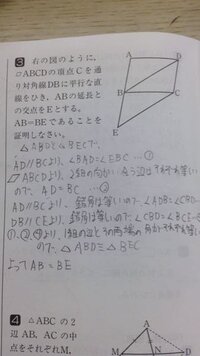 3 右の図のように,
▱ABCDの頂点Cを通
り対角線DBに平行な直
線をひき,ABの延長と
の交点をEとする。
AB=BEであることを
証明しなさい。
A
D
B
C
E
△ABDと△BECで,
AD//BCより,∠BAD=∠EBC …①
▱ABCDより,2組の向かいあう辺はそれぞれ等しい
ので,AD=BC …②
AD//BCより,錯角は等しいので∠ADB=∠CBD
DB//CEより,錯角は等しいので∠CBD=∠BCE
①,②,より,1組の辺とその両端の角がそれぞれ等しい
ので,△ABD≡△BEC
よってAB=BE
4 △ABCの2
辺AB,ACの中
点をそれぞれM,
A
M
N
D